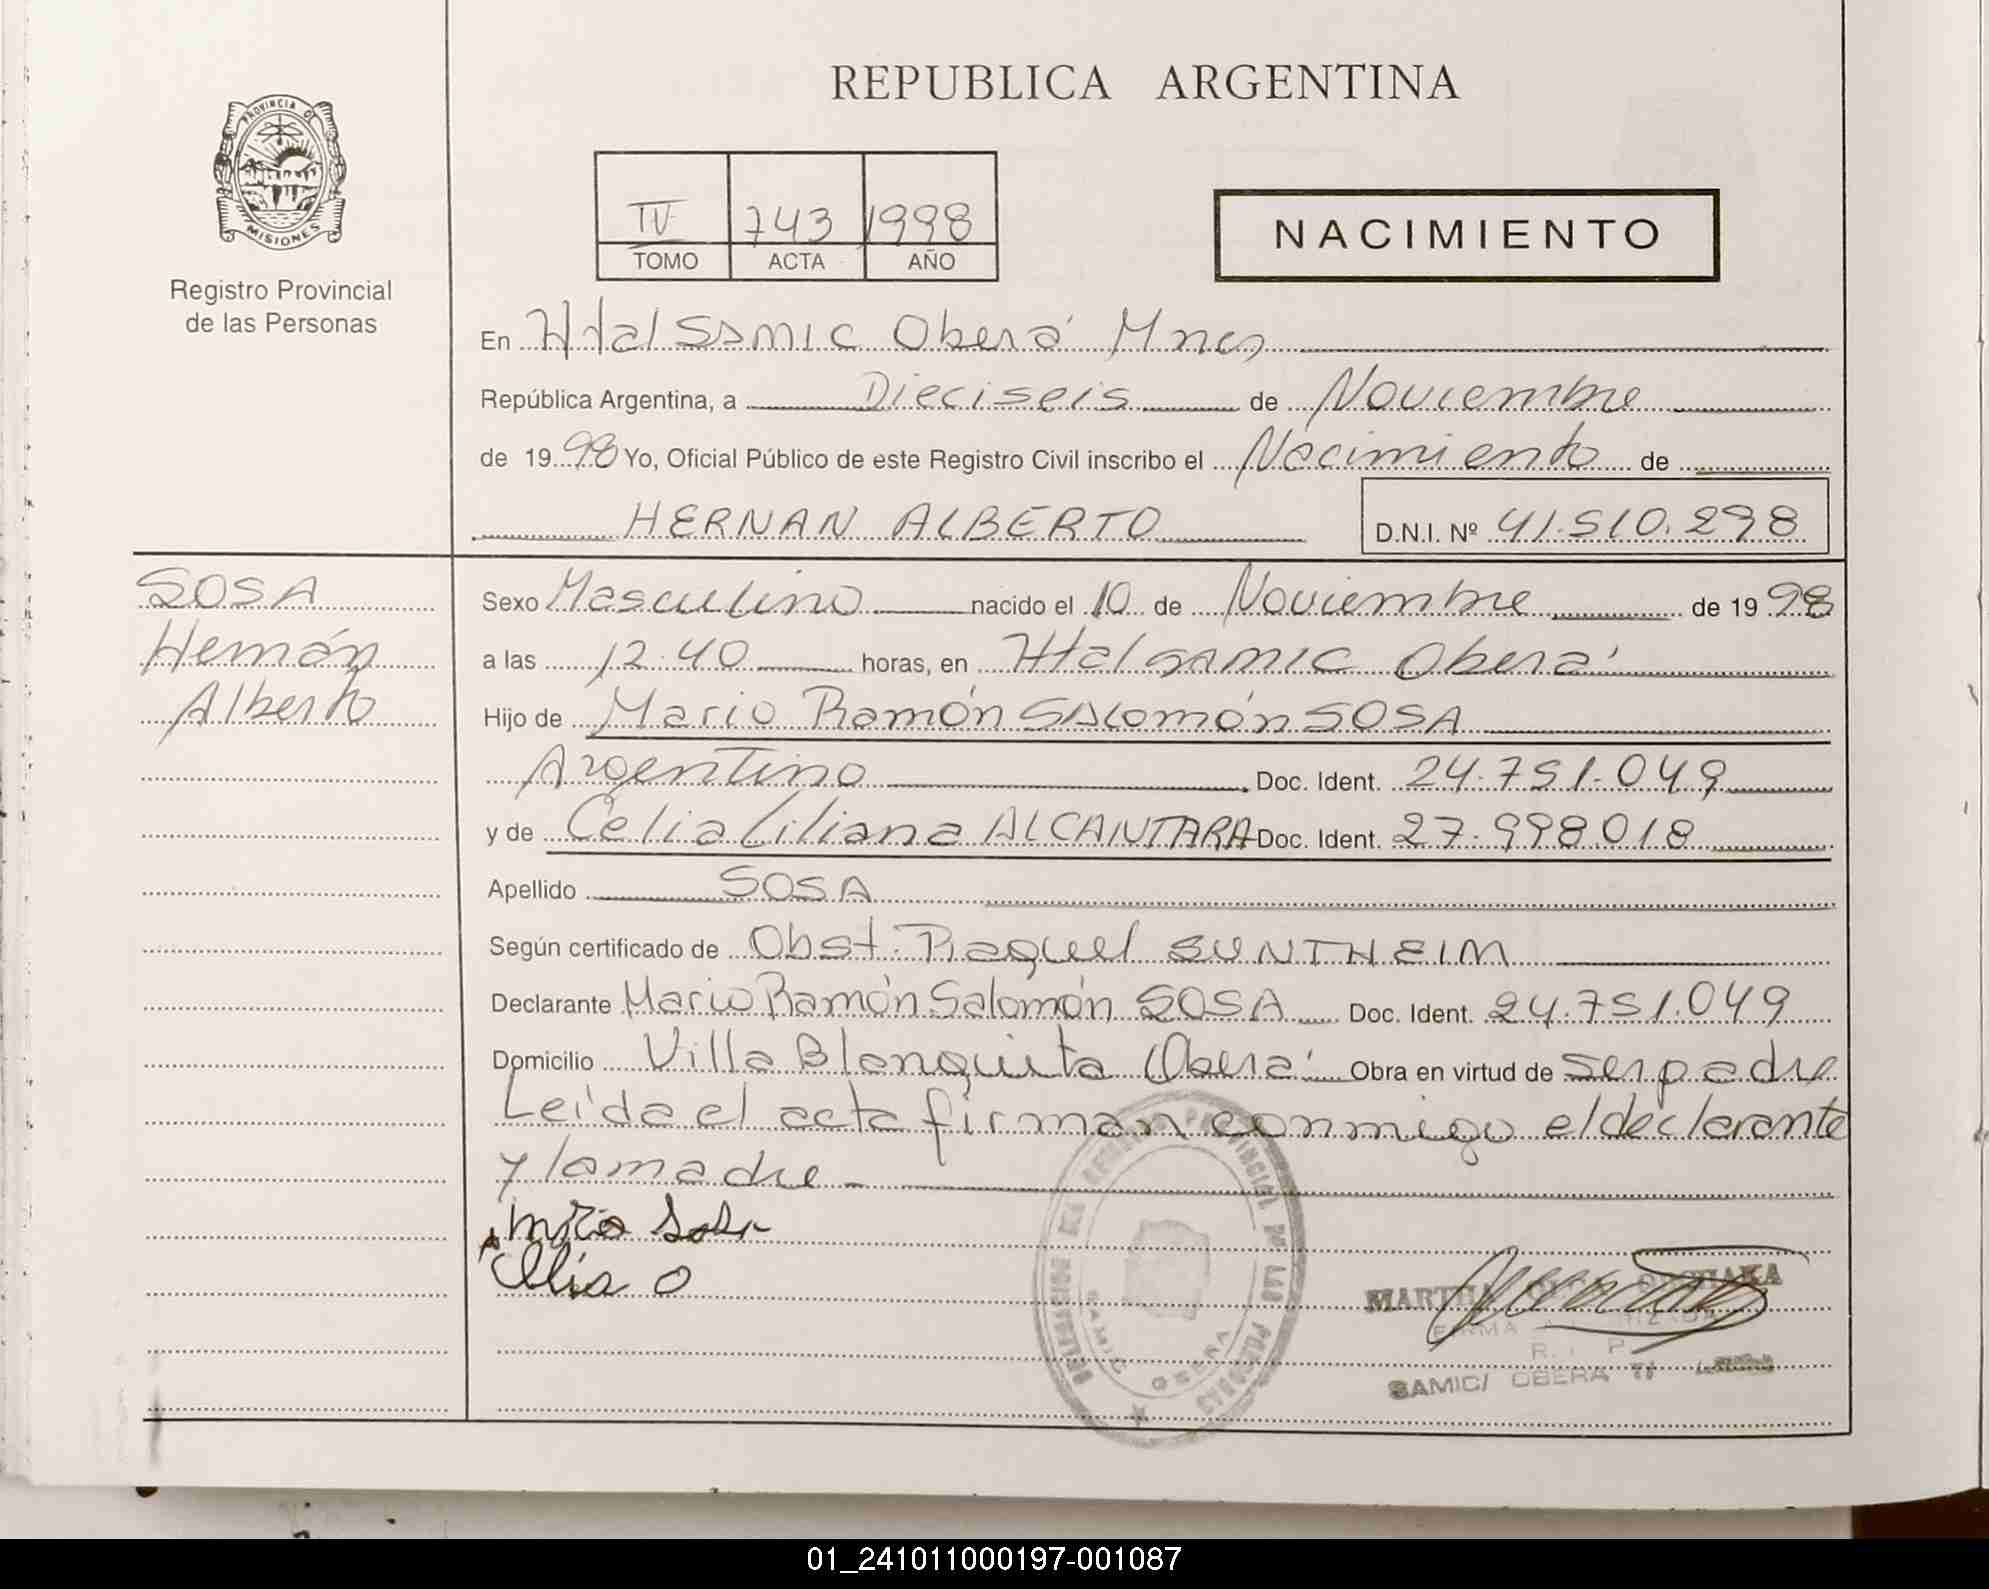 REPUBLICA ARGENTINA
PROVINCIA DE
MISIONES
Registro Provincial
de las Personas
IV 743 1998
TOMO ACTA AÑO
NACIMIENTO
En Htal SAMIC Oberá Mnes
República Argentina, a Dieciseis de Noviembre
de 1998 Yo, Oficial Público de este Registro Civil inscribo el Nacimiento de
HERNAN ALBERTO D.N.I. Nº 41.510.298
SOSA
Hernán
Alberto
Sexo Masculino nacido el 10 de Noviembre de 1998
a las 12.40 horas, en Htal SAMIC Oberá
Hijo de Mario Ramón Salomón SOSA
Argentino Doc. Ident. 24.751.049
y de Celia Liliana ALCANTARA Doc. Ident. 27.998.018
Apellido SOSA
Según certificado de Obst. Raquel SUNTHEIM
Declarante Mario Ramón Salomón SOSA Doc. Ident. 24.751.049
Domicilio Villa Blanquita Oberá Obra en virtud de ser padre
Leída el acta firman conmigo el declarante
y la madre
Sosa
Celia
REGISTRO PROVINCIAL DE LAS PERSONAS
SAMIC
MARTHA
FIRMA AUTORIZADA
R. P.
SAMIC/ OBERA
01_241011000197-001087